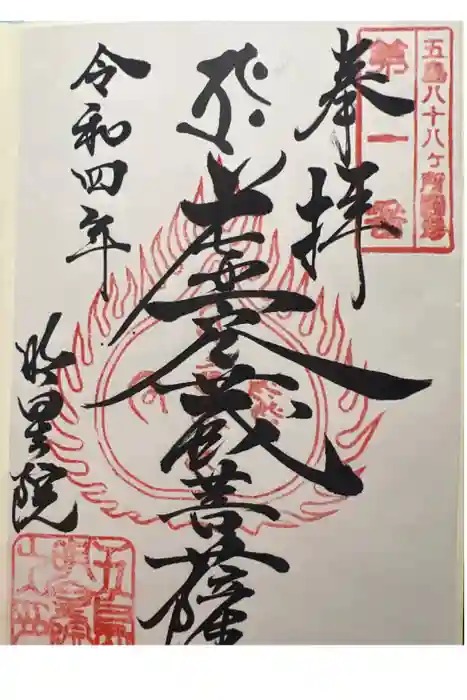 五島八十八ヶ所霊場
第一番
奉拝
虚空蔵菩薩
令和四年
明星院